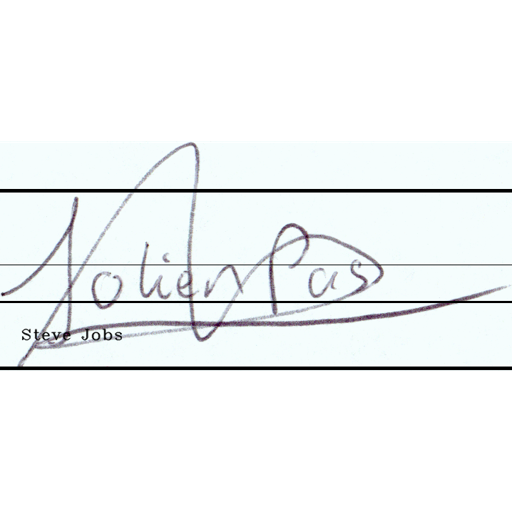 Jolien Pas
Steve Jobs